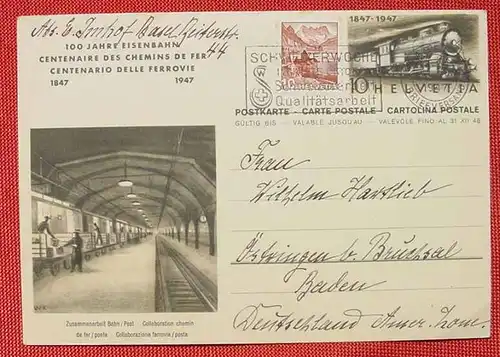 Abs. E. Imhof Basel Reiterstr.
44
100 JAHRE EISENBAHN
CENTENAIRE DES CHEMINS DE FER
CENTENARIO DELLE FERROVIE
1847 1947
1847-1947
SCHWEIZERWOCHE
Schweizerart
Qualitätsarbeit
10 HELVETIA
BRIEFVERSAND
POSTKARTE - CARTE POSTALE - CARTOLINA POSTALE
GÜLTIG BIS - VALABLE JUSQU'AU - VALEVOLE FINO AL 31 XII 48
Frau
Wilhelm Hartlieb
Östringen b. Bruchsal
Baden
Deutschland Amer. Zone.
Zusammenarbeit Bahn / Post Collaboration chemin
de fer / poste Collaborazione ferrovia / posta